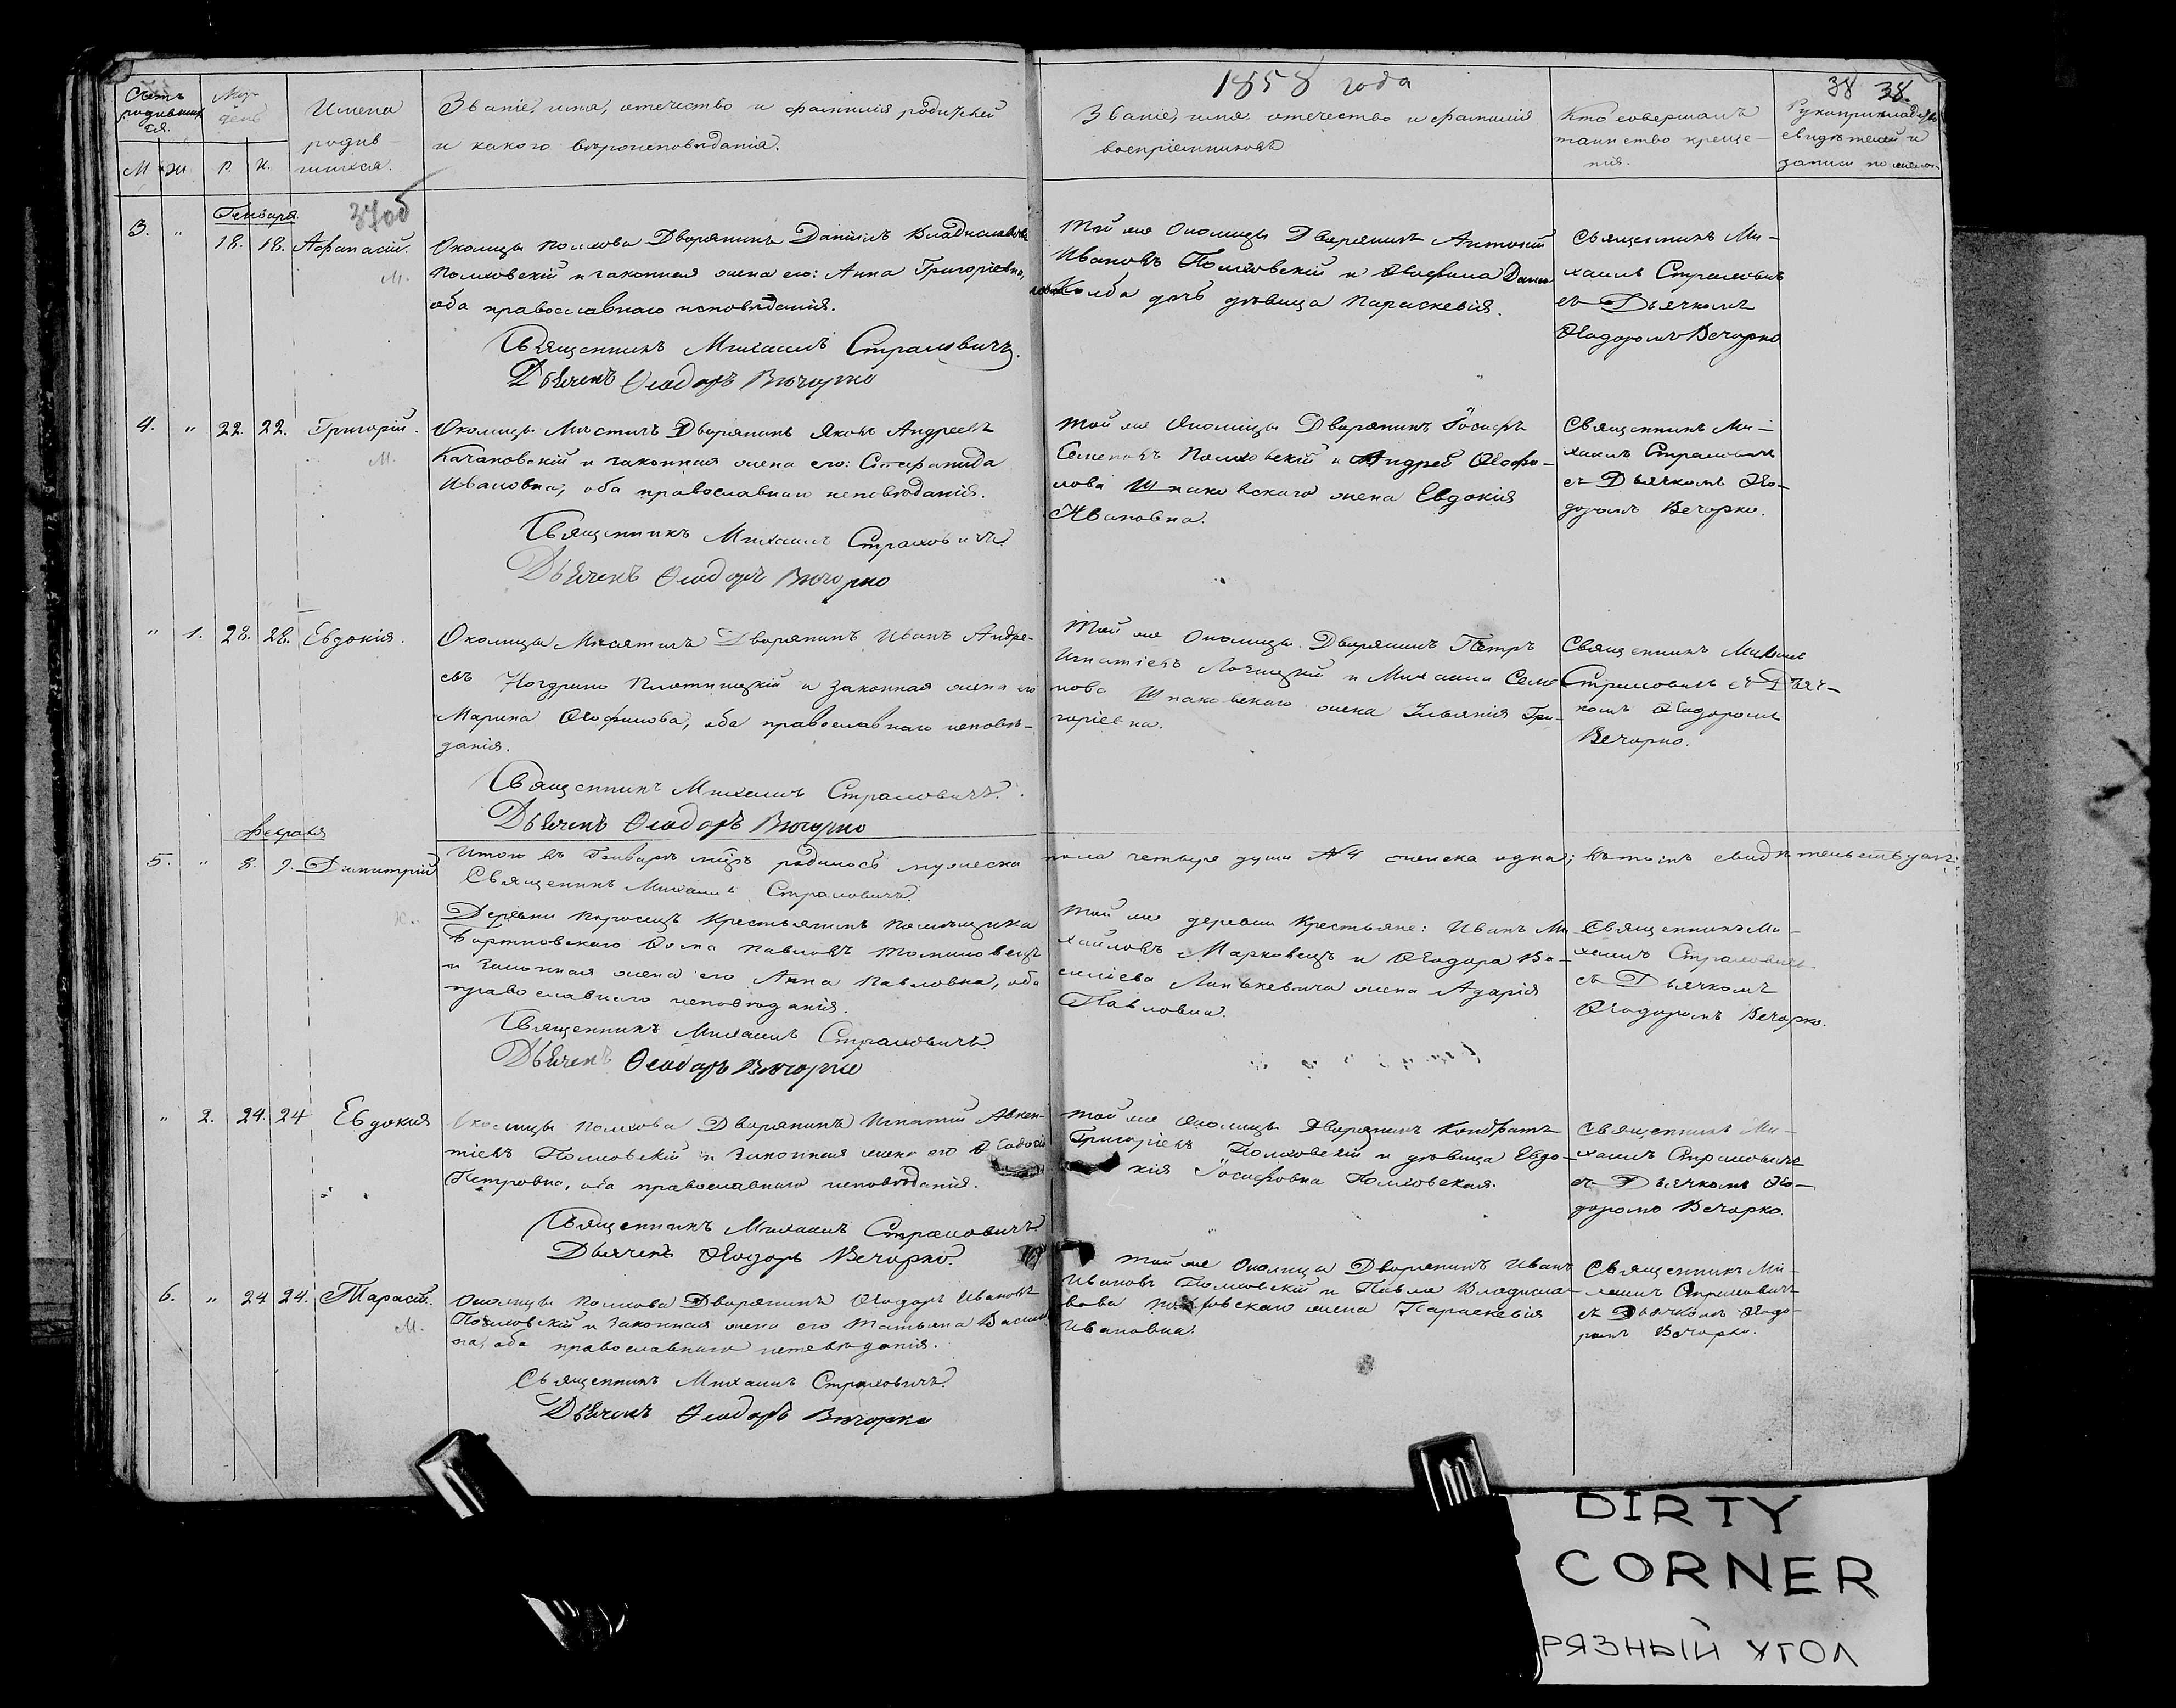 1858 года
38 38.
Счетъ родившихся.
М. Ж.
Мѣс. день
Р. К.
Имена родившихся.
Званіе, имя, отечество и фамилія родителей
и какого вѣроисповѣданія.
Званіе, имя, отечество и фамилія
воспріемниковъ
Кто совершалъ
таинство креще-
нія.
Рукоприкладство
свидѣтелей и
записи по желан.
37об
Генваря
3. " 18. 18. Афанасій.
М.
Околицы Полхова Дворянинъ Даніилъ Владиславовъ
Полховскій и законная жена его: Анна Григоріевна,
оба православнаго исповѣданія.
Священникъ Михаилъ Страховичъ.
Дьячекъ Ѳеодоръ Вечорко
Той же Околицы Дворянинъ Антоній
Ивановъ Полховскій и
дѣвица Параскевія.
Священникъ Ми-
хаилъ Страховичъ
съ Дьячкомъ
Ѳеодоромъ Вечорко
4. " 22. 22. Григорій.
М.
Околицы Мѣстичъ Дворянинъ Яковъ Андреевъ
Качановскій и законная жена его: Стефанида
Ивановна, оба православнаго исповѣданія.
Священникъ Михаилъ Страховичъ.
Дьячекъ Ѳеодоръ Вечорко
Той же Околицы Дворянинъ Іосифъ
Семеновъ Полховскій и Андрея Ѳеофи-
лова Шпаковскаго жена Евдокія
Ивановна.
Священникъ Ми-
хаилъ Страховичъ
съ Дьячкомъ Ѳео-
доромъ Вечорко.
" 1. 28. 28. Евдокія.
Околицы Дворянинъ Иванъ Андре-
евъ Плотницкій и законная жена его
Марина Ѳеофилова, оба православнаго исповѣ-
данія.
Священникъ Михаилъ Страховичъ.
Дьячекъ Ѳеодоръ Вечорко
Той же Околицы Дворянинъ Петръ
Игнатіевъ и Михаила Семе-
нова Шпаковскаго жена Ульянія Гри-
горіевна.
Священникъ Михаилъ
Страховичъ съ Дьяч-
комъ Ѳеодоромъ
Вечорко.
Февраля
Итого въ Генварѣ мѣсцѣ родилось мужеска пола четыре души №4 женска одна; въ томъ свидѣтельствуетъ:
Священникъ Михаилъ Страховичъ.
5. " 8. 9. Димитрій
Деревни Крестьянинъ помѣщика
Ѳома Павловъ
и законная жена его Анна Павловна, оба
православнаго исповѣданія.
Священникъ Михаилъ Страховичъ.
Дьячекъ Ѳеодоръ Вечорко
Той же деревни Крестьяне: Иванъ Ми-
хайловъ Марковецъ и Ѳеодора Ва-
силіева жена Агарія
Павловна.
Священникъ Ми-
хаилъ Страховичъ
съ Дьячкомъ
Ѳеодоромъ Вечорко.
" 2. 24. 24 Евдокия
Околицы Полхова Дворянинъ Игнатій Авкен-
тіевъ Полховскій и законная жена его Ѳеодосія
Петровна, оба православнаго исповѣданія.
Священникъ Михаилъ Страховичъ
Дьячекъ Ѳеодоръ Вечорко.
Той же Околицы Дворянинъ Кондратъ
Григоріевъ Полховскій и дѣвица Евдо-
кія Іосифовна Полховская.
Священникъ Ми-
хаилъ Страховичъ
съ Дьячкомъ Ѳео-
доромъ Вечорко.
6. " 24 24. Тарасій.
М.
Околицы Полхова Дворянинъ Ѳеодоръ Ивановъ
Полховскій и законная жена его Татьяна
оба православнаго исповѣданія.
Священникъ Михаилъ Страховичъ.
Дьячекъ Ѳеодоръ Вечорко
Той же Околицы Дворянинъ Иванъ
Ивановъ Полховскій и Павла Владисла-
вова Полховскаго жена Параскевія
Ивановна.
Священникъ Ми-
хаилъ Страховичъ
съ Дьячкомъ Ѳеодо-
ромъ Вечорко.
DIRTY
CORNER
РЯЗНЫЙ УГОЛ